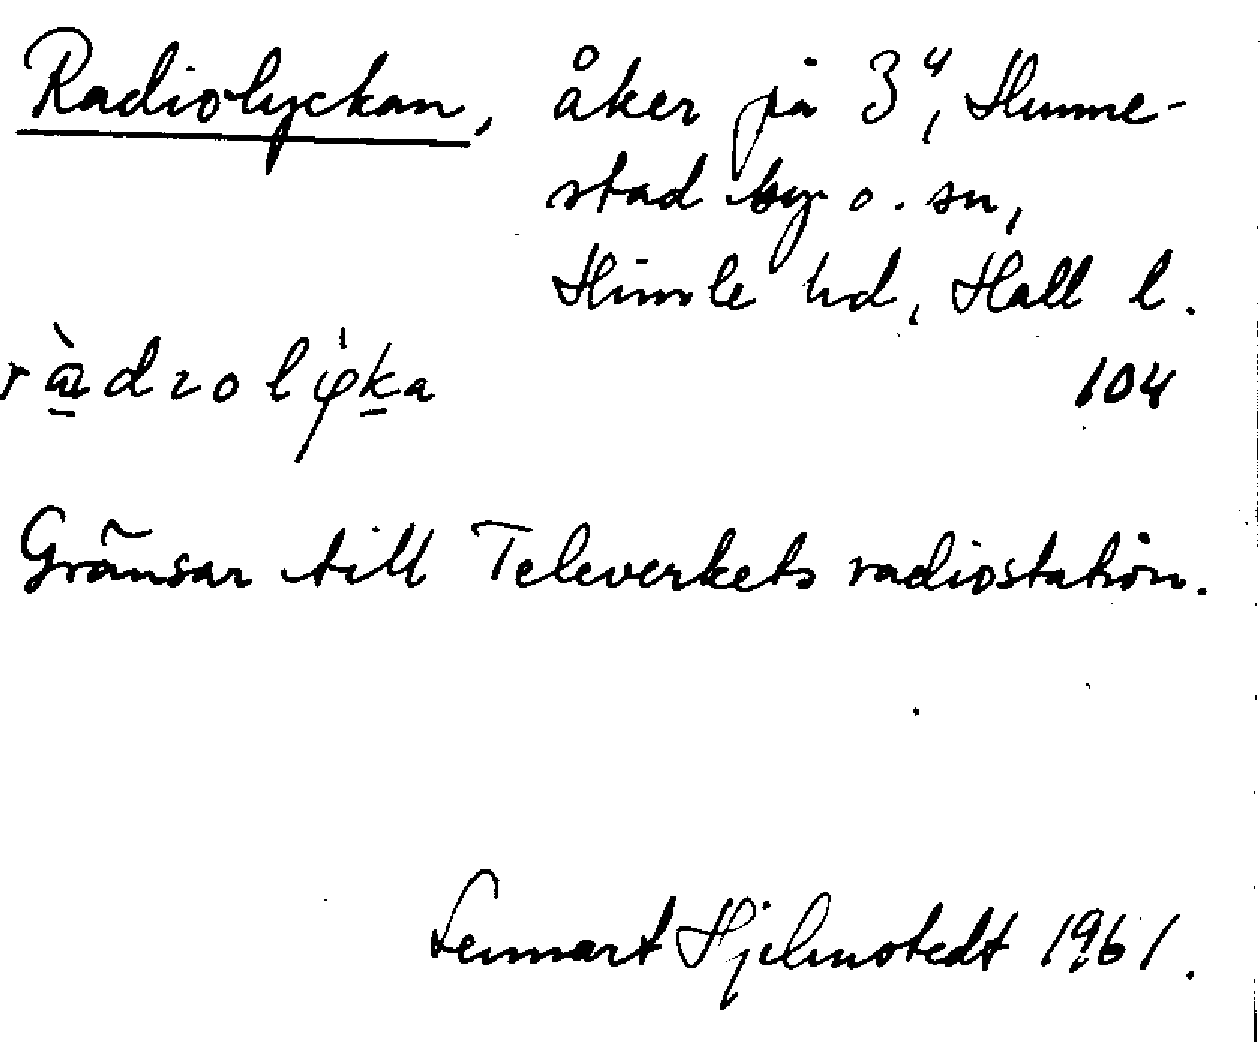 Radiolyckan, åker på 3⁴, Hunne-
stad by o. sn,
Himle hd, Hall l.
104
Gränsar till Televerkets radiostation.
Lennart Hjelmstedt 1961.